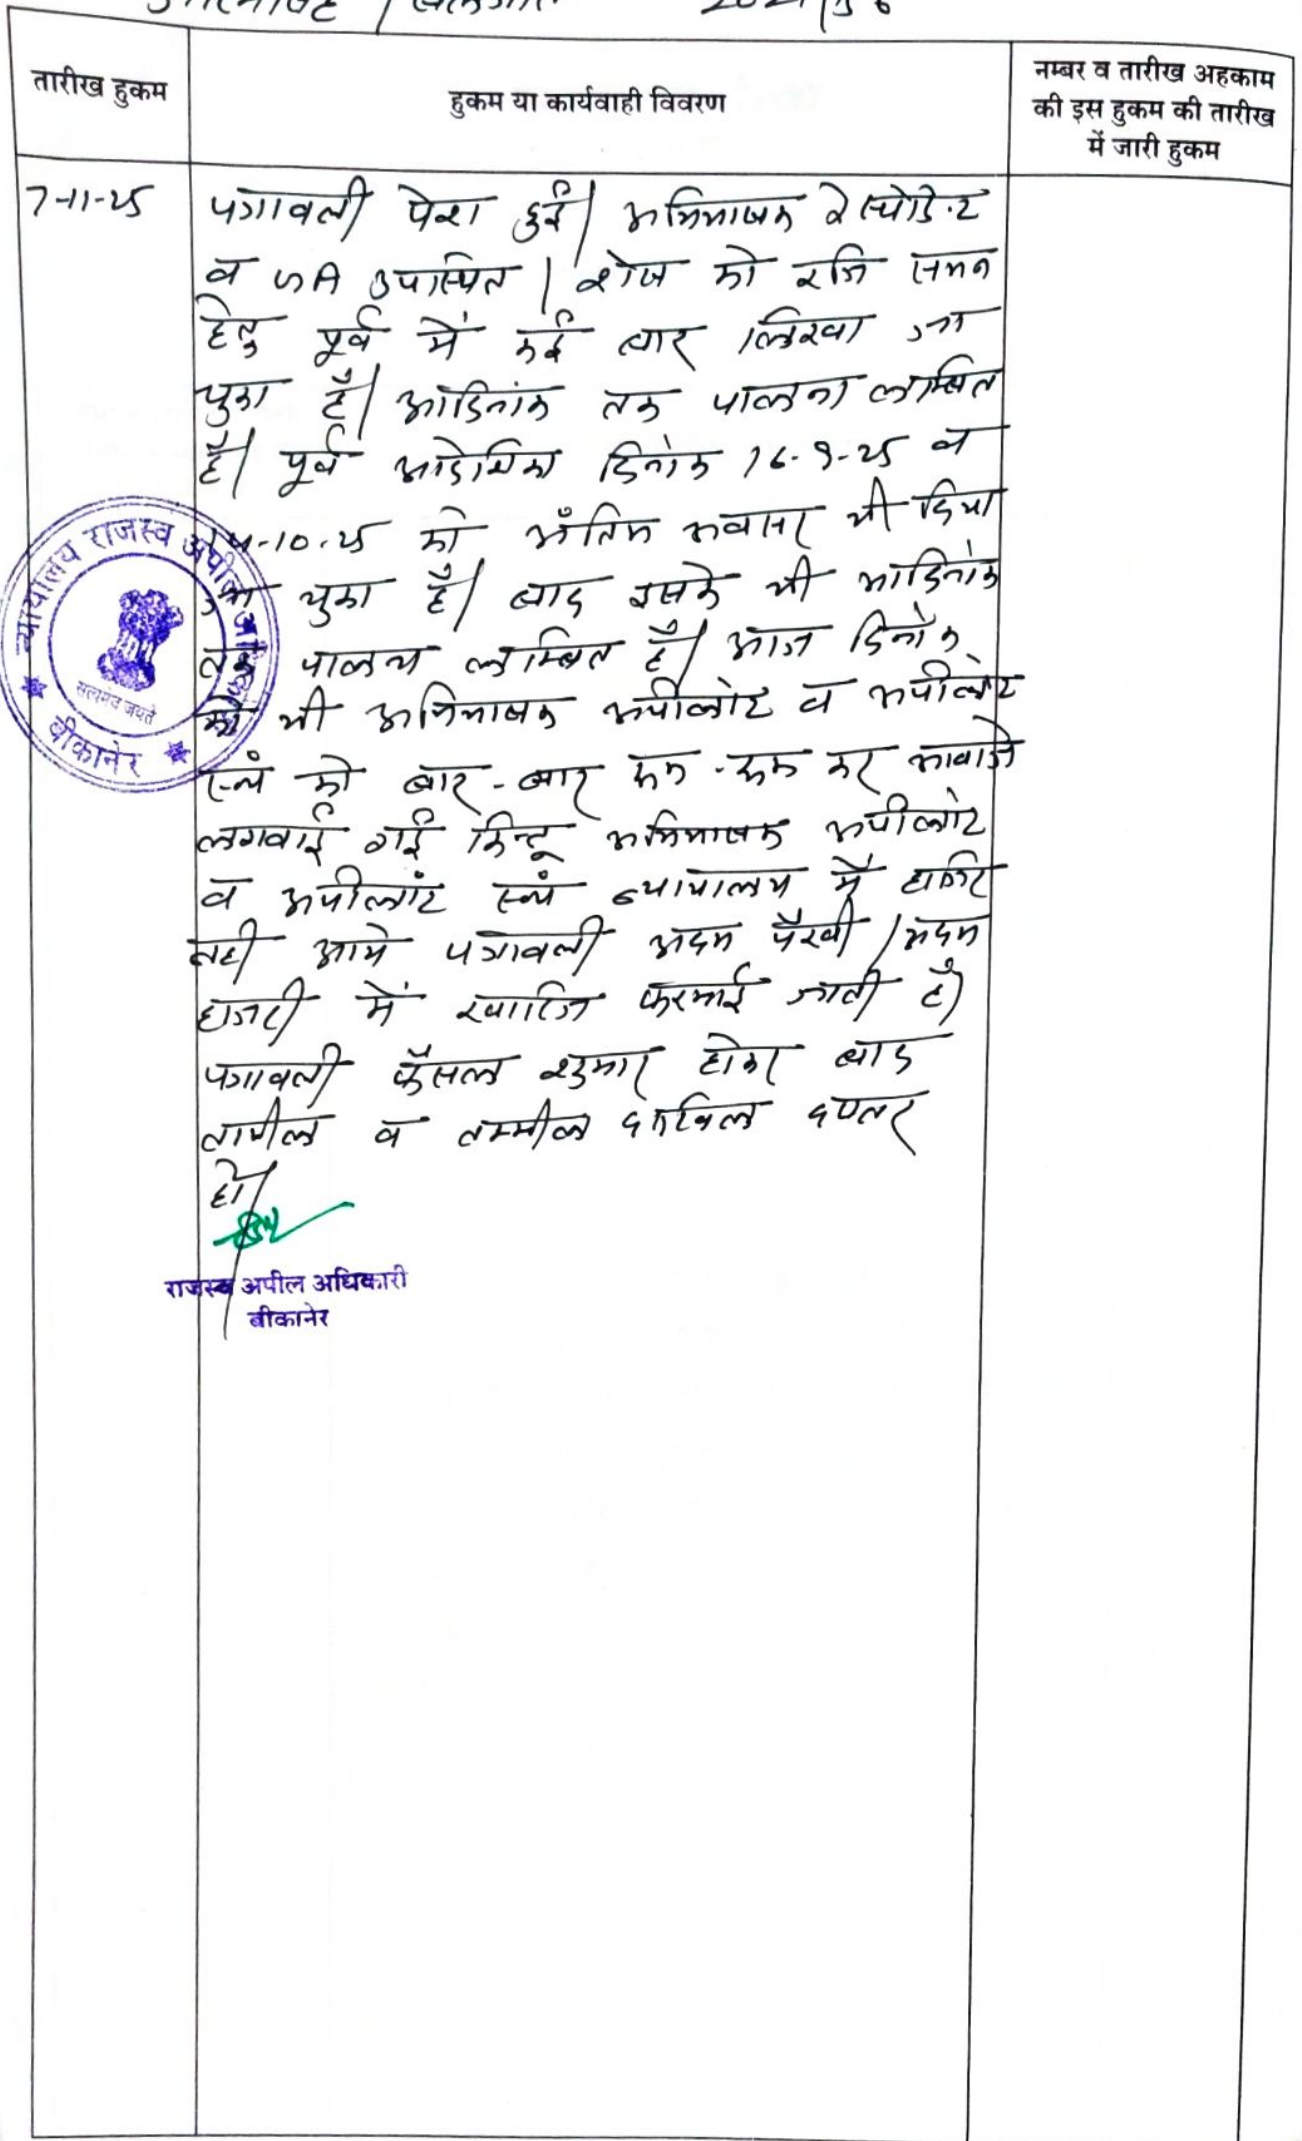 2021/56
तारीख हुकम
हुकम या कार्यवाही विवरण
नम्बर व तारीख अहकाम
की इस हुकम की तारीख
में जारी हुकम
7-11-25
पत्रावली पेश हुई। अभिभाषक रेस्पोडेन्ट
व GA उपस्थित। शेष को रजि समन
हेतु पूर्व में कई बार लिखा जा
चुका है। आदिनांक तक पालना लम्बित
है। पूर्व आदेशिका दिनांक 16-9-25 व
-10-25 को अंतिम अवसर भी दिया
जा चुका है। बाद इसके भी आदिनांक
तक पालना लम्बित है। आज दिनांक
को भी अभिभाषक अपीलांट व अपीलांट
स्वयं को बार-बार रूक-रूक कर आवाजे
लगवाई गई किन्तू अभिभाषक अपीलांट
व अपीलांट स्वयं न्यायालय में हाजिर
नही आये पत्रावली अदम पैरवी / अदम
हाजरी में खारिज फरमाई जाती है।
पत्रावली फैसल शुमार होकर बाद
तामील व तकमील दाखिल दफ्तर
हो।
न्यायालय राजस्व अपील अधिकारी
सत्यमेव जयते
बीकानेर
राजस्व अपील अधिकारी
बीकानेर